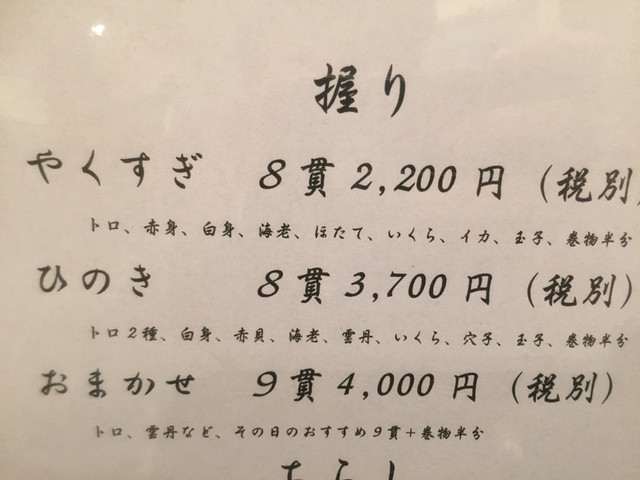 握り
やくすぎ 8貫 2,200円 (税別)
トロ、赤身、白身、海老、ほたて、いくら、イカ、玉子、巻物半分
ひのき 8貫 3,700円 (税別)
トロ2種、白身、赤貝、海老、雲丹、いくら、穴子、玉子、巻物半分
おまかせ 9貫 4,000円 (税別)
トロ、雲丹など、その日のおすすめ9貫+巻物半分
ちらし